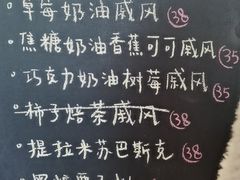 ·草莓奶油戚风 38
·焦糖奶油香蕉可可戚风 35
·巧克力奶油树莓戚风 35
·柿子焙茶戚风 38
·提拉米苏巴斯克 38